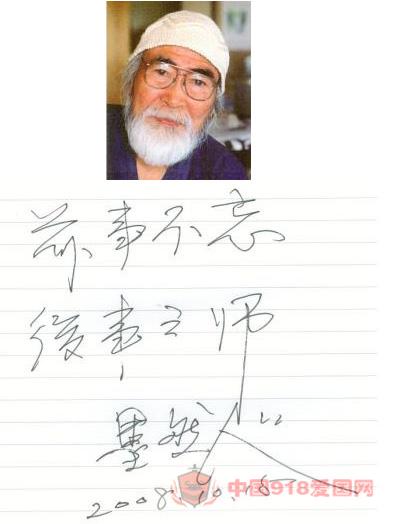 前事不忘
後事之师
墨然人
2008.10.18
中国918爱国网